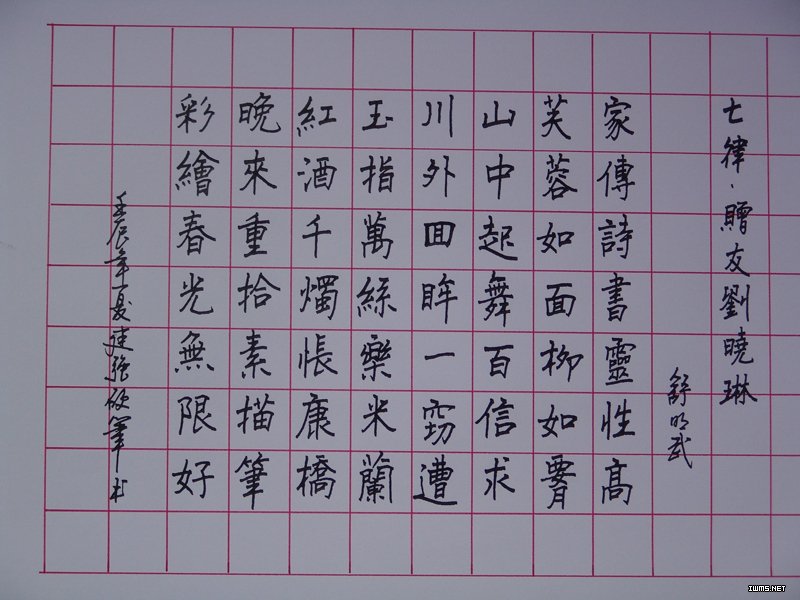 七律·贈友劉曉琳
舒明武
家傳詩書靈性高
芙蓉如面柳如腰
山中起舞百信求
川外回眸一窈遭
玉指萬絲樂米蘭
紅酒千燭悵康橋
晚來重拾素描筆
彩繪春光無限好
壬辰年夏建強硬筆书
IWMS.NET